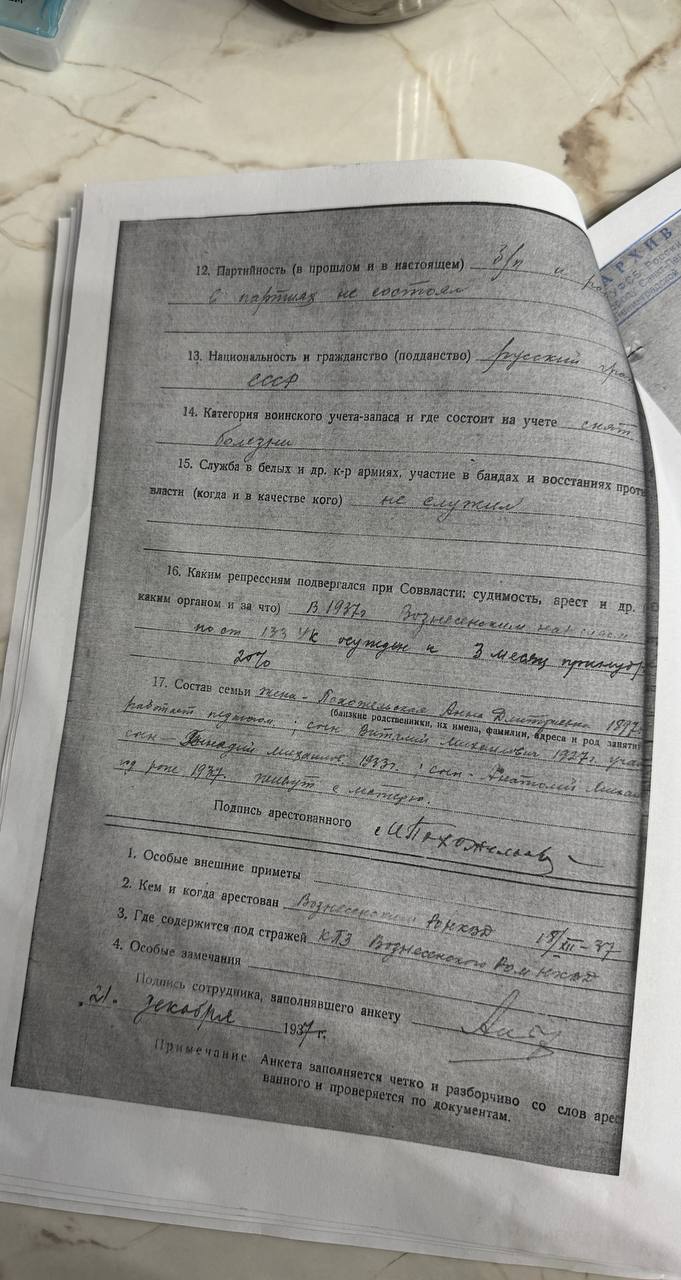 12. Партийность (в прошлом и в настоящем) б/п и
в партиях не состоял
13. Национальность и гражданство (подданство) русский
СССР
14. Категория воинского учета-запаса и где состоит на учете снят
болезни
15. Служба в белых и др. к-р армиях, участие в бандах и восстаниях проти
власти (когда и в качестве кого) не служил
16. Каким репрессиям подвергался при Соввласти: судимость, арест и др.
каким органом и за что) В 1937г Вознесенским нарсудом
по ст. 133 УК осужден к 3 месяц принуд
20%
17. Состав семьи жена - Анна Дмитриевна 1897
(близкие родственники, их имена, фамилии, адреса и род занятий
работает ; сын Виталий Михайлович 1927г.
сын - Геннадий Михайлов. 1933г. ; сын - Анатолий
рож 1937. живут с матерью.
Подпись арестованного
1. Особые внешние приметы
2. Кем и когда арестован Вознесенским РОНКВД 18/XII-37
3. Где содержится под стражей КПЗ Вознесенского НКВД
4. Особые замечания
Подпись сотрудника, заполнявшего анкету
„21. декабря 1937 г.
Примечание Анкета заполняется четко и разборчиво со слов арес
ванного и проверяется по документам.
АРХИВ